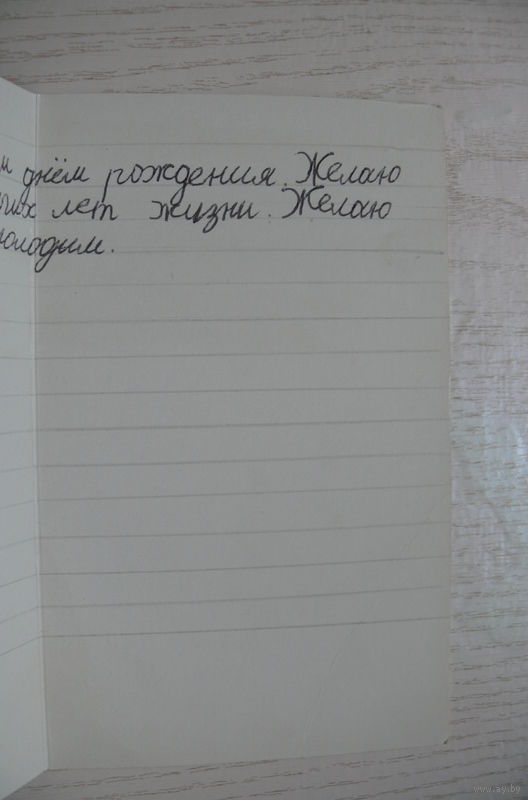 м днём рождения. Желаю
гих лет жизни. Желаю
молодым.
www.ay.by